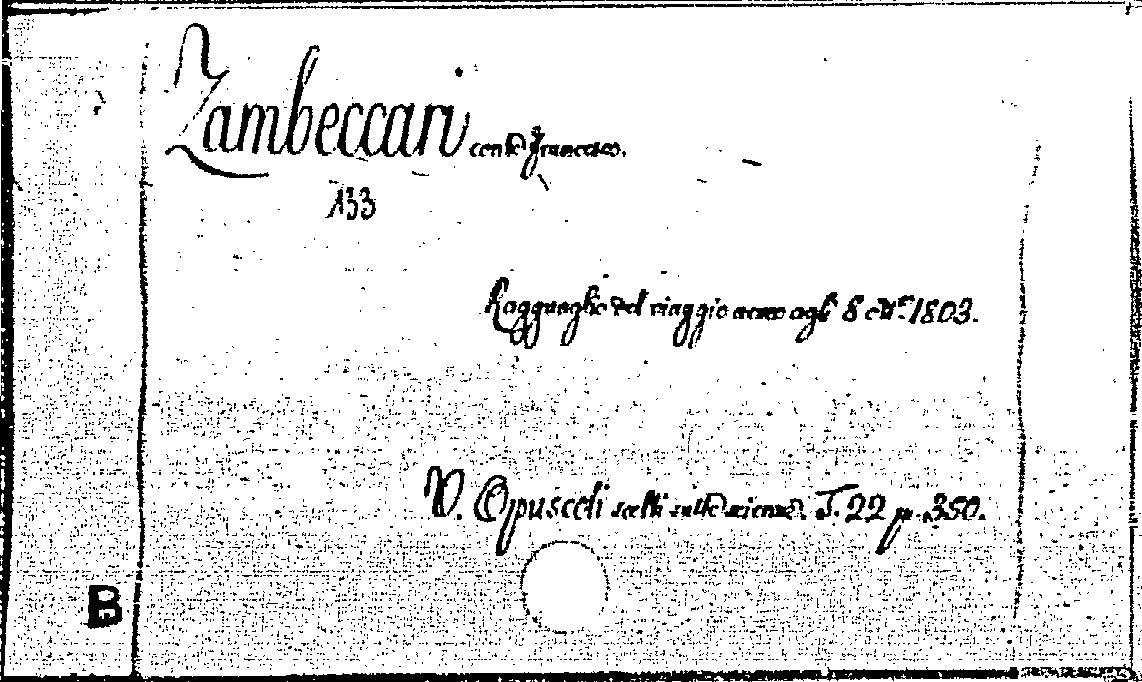 Zambeccari conte Francesco.
133
Ragguaglio del viaggio aereo agli 8 ott.e 1803.
V. Opuscoli scelti sulle scienze. T. 22 p. 350.
B